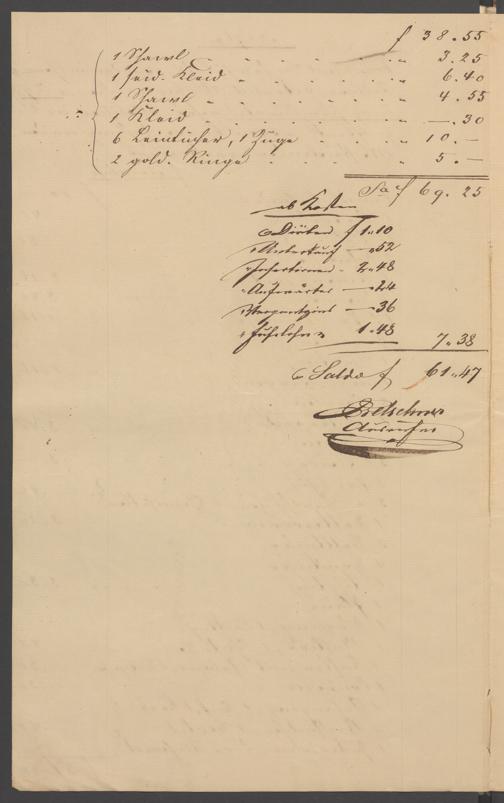 f 38.55
1 Shawl " 3.25
1 seid. Kleid " 6.40
1 Shawl " 4.55
1 Kleid " —.30
6 Leintücher, 1 Züge " 10.—
2 gold. Ringe " 5.—
Sa f 69.25
ab Kosten
Diäten f 1"10
—"52
Insertionen - 2"48
Aufwärter —"24
—"36
Fuhrlohn 1.48
7"38
Saldo f 61"47
Ausrufer